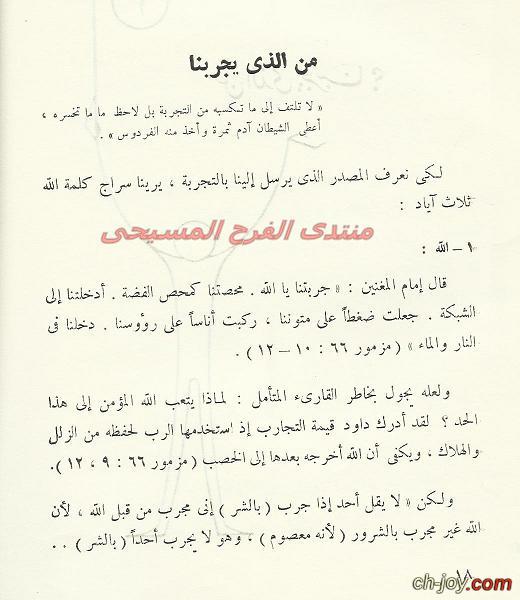 من الذى يجربنا
« لا تلتف إلى ما تكسبه من التجربة بل لاحظ ما ما تخسره ،
أعطى الشيطان آدم ثمرة وأخذ منه الفردوس » .
لكى نعرف المصدر الذى يرسل إلينا بالتجربة ، يرينا سراج كلمة الله
ثلاث آياد :
منتدى الفرح المسيحى
١ – الله :
قال إمام المغنين : « جربتنا يا الله . محصتنا كمحص الفضة . أدخلتنا إلى
الشبكة . جعلت ضغطاً على متوننا ، ركبت أناساً على رؤوسنا . دخلنا فى
النار والماء » ( مزمور ٦٦ : ١٠ – ١٢ ) .
ولعله يجول بخاطر القارىء المتأمل : لماذا يتعب الله المؤمن إلى هذا
الحد ؟ لقد أدرك داود قيمة التجارب إذ استخدمها الرب لحفظه من الزلل
والهلاك ، ويكفى أن الله أخرجه بعدها إلى الخصب ( مزمور ٦٦ : ٩ ، ١٢ ).
ولكن « لا يقل أحد إذا جرب ( بالشر ) إنى مجرب من قبل الله ، لأن
الله غير مجرب بالشرور ( لأنه معصوم ) ، وهو لا يجرب أحداً ( بالشر ) . .
١٨
ch-joy.com